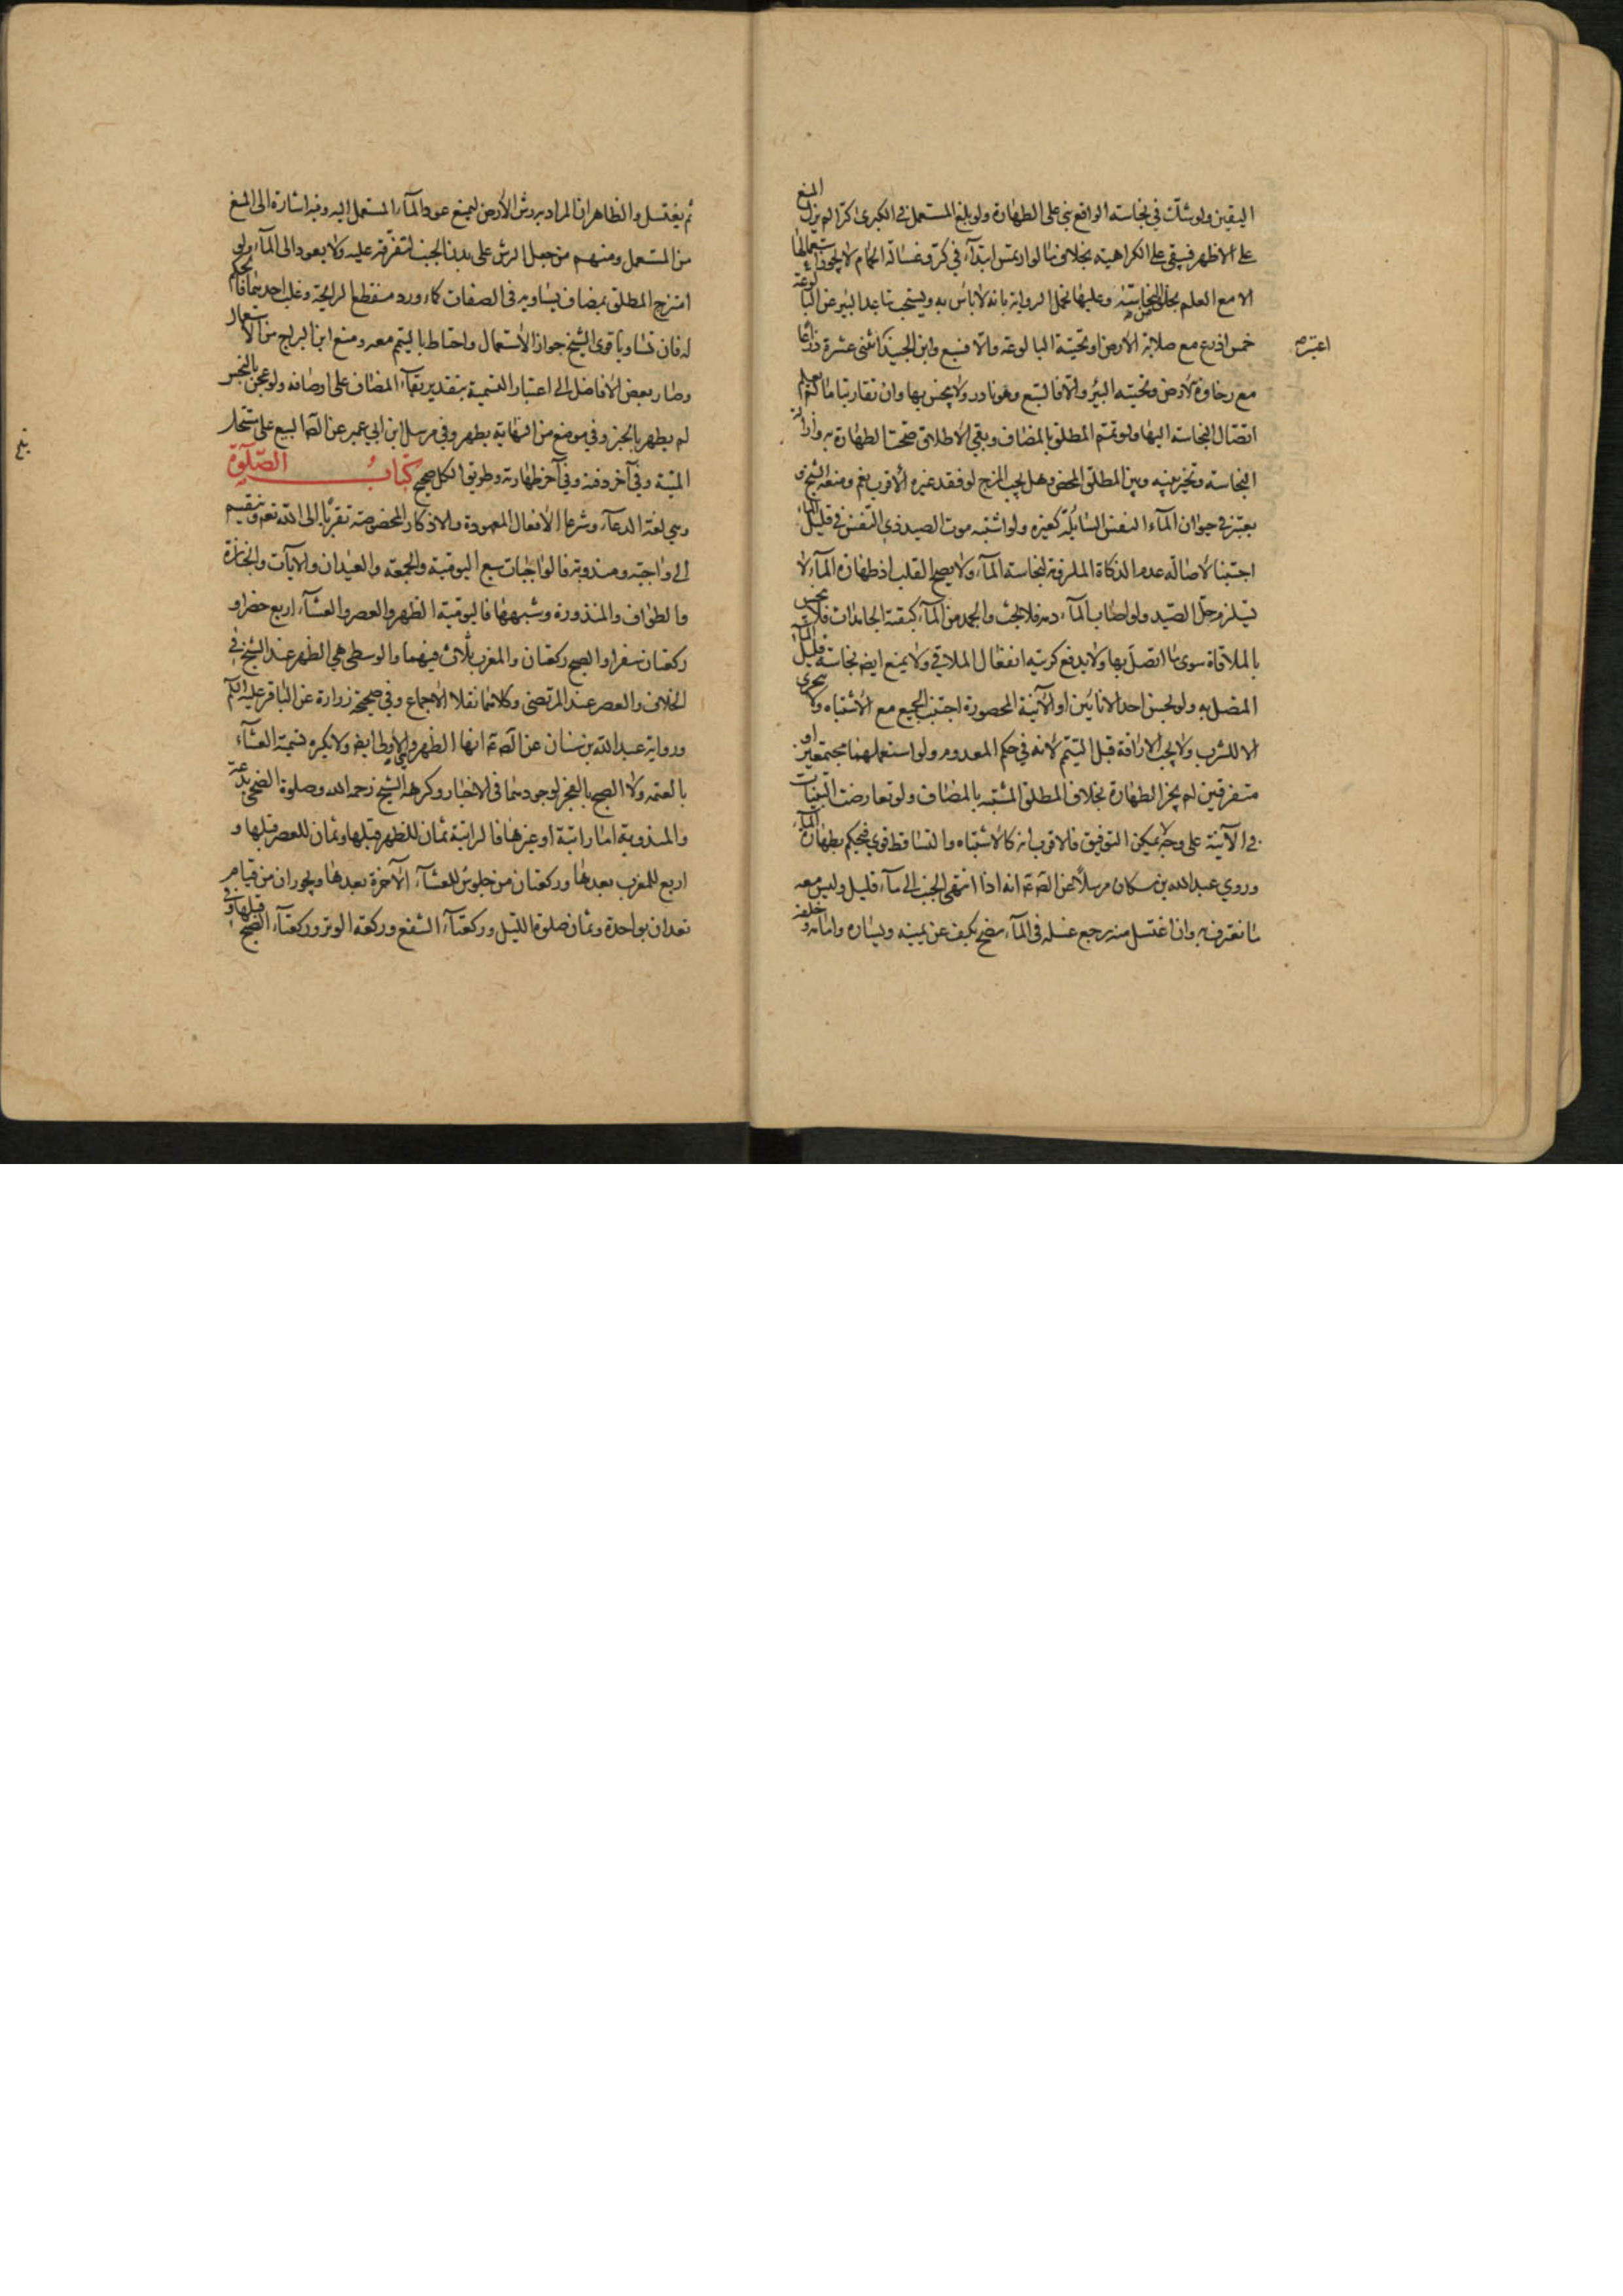 اليقين ولو شك في نجاسة الواقع بنى على الطهارة ولو بلغ المستعمل في الكبرى كرا لم يزل المنع
على الاظهر فيبقى على الكراهية بخلاف ما لو ارتمس ابتداء في كر وغسالة الحمام لا يجوز استعمالها
الا مع العلم بخلو من النجاسة وعليها تحمل الرواية بانه لا باس به ويستحب تباعد البئر عن البالوعة
خمس اذرع مع صلابة الارض او تحتية البالوعة والا فسبع وابن الجنيد اثنتى عشرة ذراعا
مع رخاوة الارض وتحتية البئر والا فالسبع وهو نادر ولا ينجس بها وان تقاربتا ما لم يعلم
اتصال النجاسة اليها ولو تمم المطلق بالمضاف وبقي الاطلاق صحت الطهارة به وازالة
النجاسة وتخير بينه وبين المطلق المحض وهل يجب المزج لو فقد غيره الاقرب نعم ومنعه الشيخ و
يعتبر في حيوان الماء النفس السائلة كغيره ولو اشتبه موت الصيد ذي النفس في قليل الماء
اجتنبا لاصالة عدم الذكاة الملزومة لنجاسة الماء ولا يصح القلب اذ طهارة الماء لا
تستلزم حل الصيد ولو اصاب الماء دم فلا بحث والجمد من الماء كبقية الجامدات فلا ينجس
بالملاقاة سوى ما اتصل بها ولا يدفع كريته انفعال الملاقي ولا يمنع ايضا نجاسة قليل الماء
المتصل به ولو نجس احد الانائين او الآنية المحصورة اجتنب الجميع مع الاشتباه ولا تحرى
الا للشرب ولا يجب الاراقة قبل التيمم لانه في حكم المعدوم ولو استعملهما مجتمعين او
متفرقين لم يجز الطهارة بخلاف المطلق المشتبه بالمضاف ولو تعارضت البينات
في الآنية على وجه لا يمكن التوفيق فالاقرب انه كالاشتباه والتساقط قوي فيحكم بطهارة الماء
وروي عبد الله بن مسكان مرسلا عن الص ع انه اذا انتهى الجنب الى ماء قليل وليس معه
ما نغترف به وان اغتسل منه رجع غسله في الماء نضح بكف عن يمينه ويساره وامامه وخلفه
اعتبرهم
ثم يغتسل والظاهر ان المراد به رش الارض ليمنع عود الماء المستعمل اليه وفيه اشارة الى المنع
من المستعمل ومنهم من جعل الرش على بدن الجنب لتفرقه عليه ولا يعود الى الماء ولو
امتزج المطلق بمضاف يساويه في الصفات كماء ورد منقطع الرايحة وغلب احدهما فالحكم
له فان تساويا قوى الشيخ جواز الاستعمال واحتاط بالتيمم معه ومنع ابن البراج من الاستعمال
وصار بعض الافاضل الى اعتبار التسمية بتقدير بقاء المضاف على اوصافه ولو عجن بالنجس
لم يطهر بالخبز وفي موضع من النهاية يطهر وفي مرسل ابن ابي عمير عن الص البيع على مستحل
الميتة وفي آخر دفنه وفي آخر طهارته وطريق الكل صحيح كتاب الصلوة
وهي لغة الدعاء وشرعا الافعال المعهودة والاذكار المخصوصة تقربا الى الله تع وتنقسم
الى واجبة ومندوبة فالواجبات سبع اليومية والجمعة والعيدان والايات والجنازة
والطواف والمنذورة وشبهها فاليومية الظهر والعصر والعشاء اربع حضرا و
ركعتان سفرا والصبح ركعتان والمغرب ثلاث فيهما والوسطى هي الظهر عند الشيخ في
الخلاف والعصر عند المرتضى وكلاهما نقلا الاجماع وفي صحيحة زرارة عن الباقر عليه السلم
ورواية عبد الله بن سنان عن الص ع انها الظهر وهي الوسطى ايضا ولا يكره تسمية العشاء
بالعتمة ولا الصبح بالفجر لوجودهما في الاخبار وكرهه الشيخ رحمه الله وصلوة الضحى بدعة
والمندوبة اما راتبة او غيرها فالراتبة ثمان للظهر قبلها وثمان للعصر قبلها و
اربع للمغرب بعدها وركعتان من جلوس للعشاء الآخرة بعدها ويجوران من قيام
تعدان بواحدة وثمان صلوة الليل وركعتا الشفع وركعة الوتر وركعتا الصبح قبلها وفي